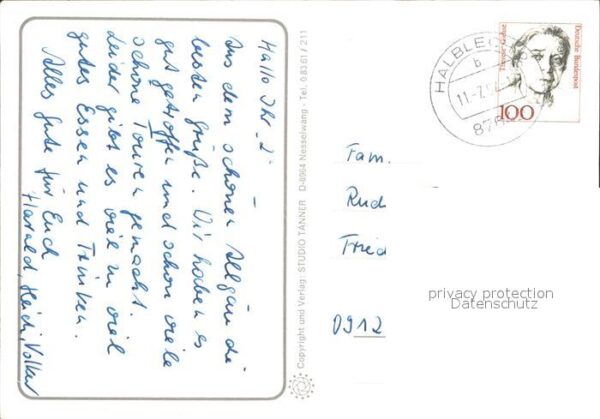 Hallo Ihr "2"
Aus dem schönen Allgäu die
besten Grüße. Wir haben es
gut getroffen und schon viele
schöne Touren gemacht.
Leider gibt es viel zu viel
gutes Essen und Trinken.
Alles Gute für Euch
Harald, Heidi, Volker
Copyright und Verlag: STUDIO TANNER D-8964 Nesselwang - Tel. 08361 / 211
HALBLE
b
11.-7.9
87
Deutsche Bundespost
100
Fam.
Rud
Fried
0912
privacy protection
Datenschutz